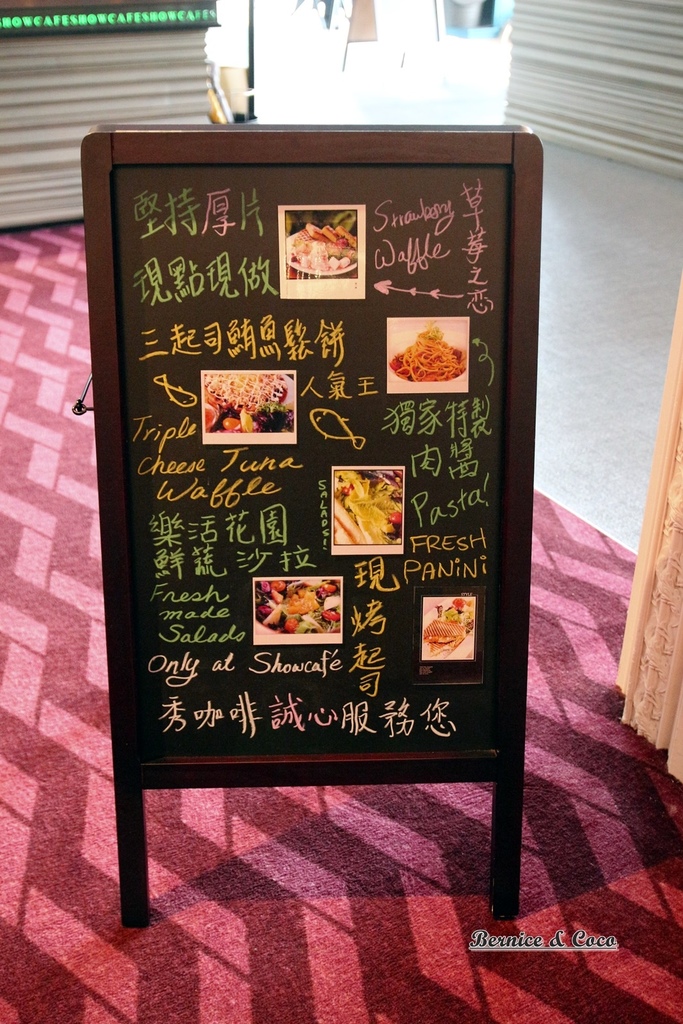 SHOWCAFESHOWCAFESHOWCAFE
堅持厚片
現點現做
Strawberry
Waffle
草莓之戀
三起司鮪魚鬆餅
人氣王
Triple
Cheese Tuna
Waffle
獨家特製
肉醬
Pasta!
SALADS!
樂活花園
鮮蔬沙拉
Fresh
made
Salads
FRESH
PANiNi
現烤起司
Only at Showcafé
秀咖啡誠心服務您
Bernice & Coco